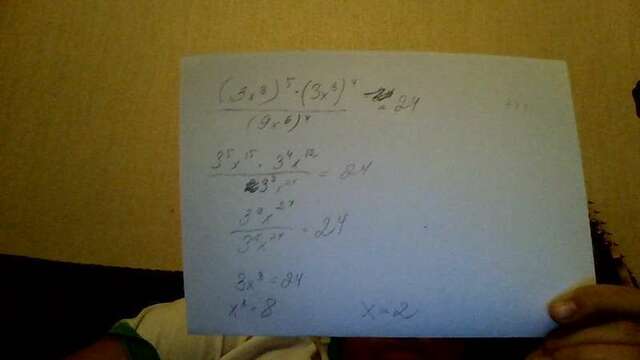 (3x³)⁵ · (3x³)⁴ / (9x⁶)⁴ = 24
3⁵x¹⁵ · 3⁴x¹² / 3⁸x²⁴ = 24
3⁹x²⁷ / 3⁸x²⁴ = 24
3x³ = 24
x³ = 8 x = 2